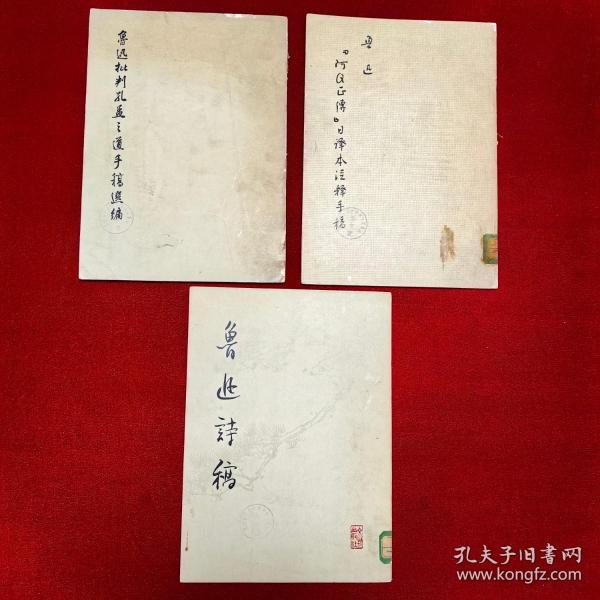 魯迅批判孔孟之道手稿選編
魯迅
『阿Q正傳』日譯本注释手稿
魯迅詩稿
孔夫子旧书网
www.kongfz.com